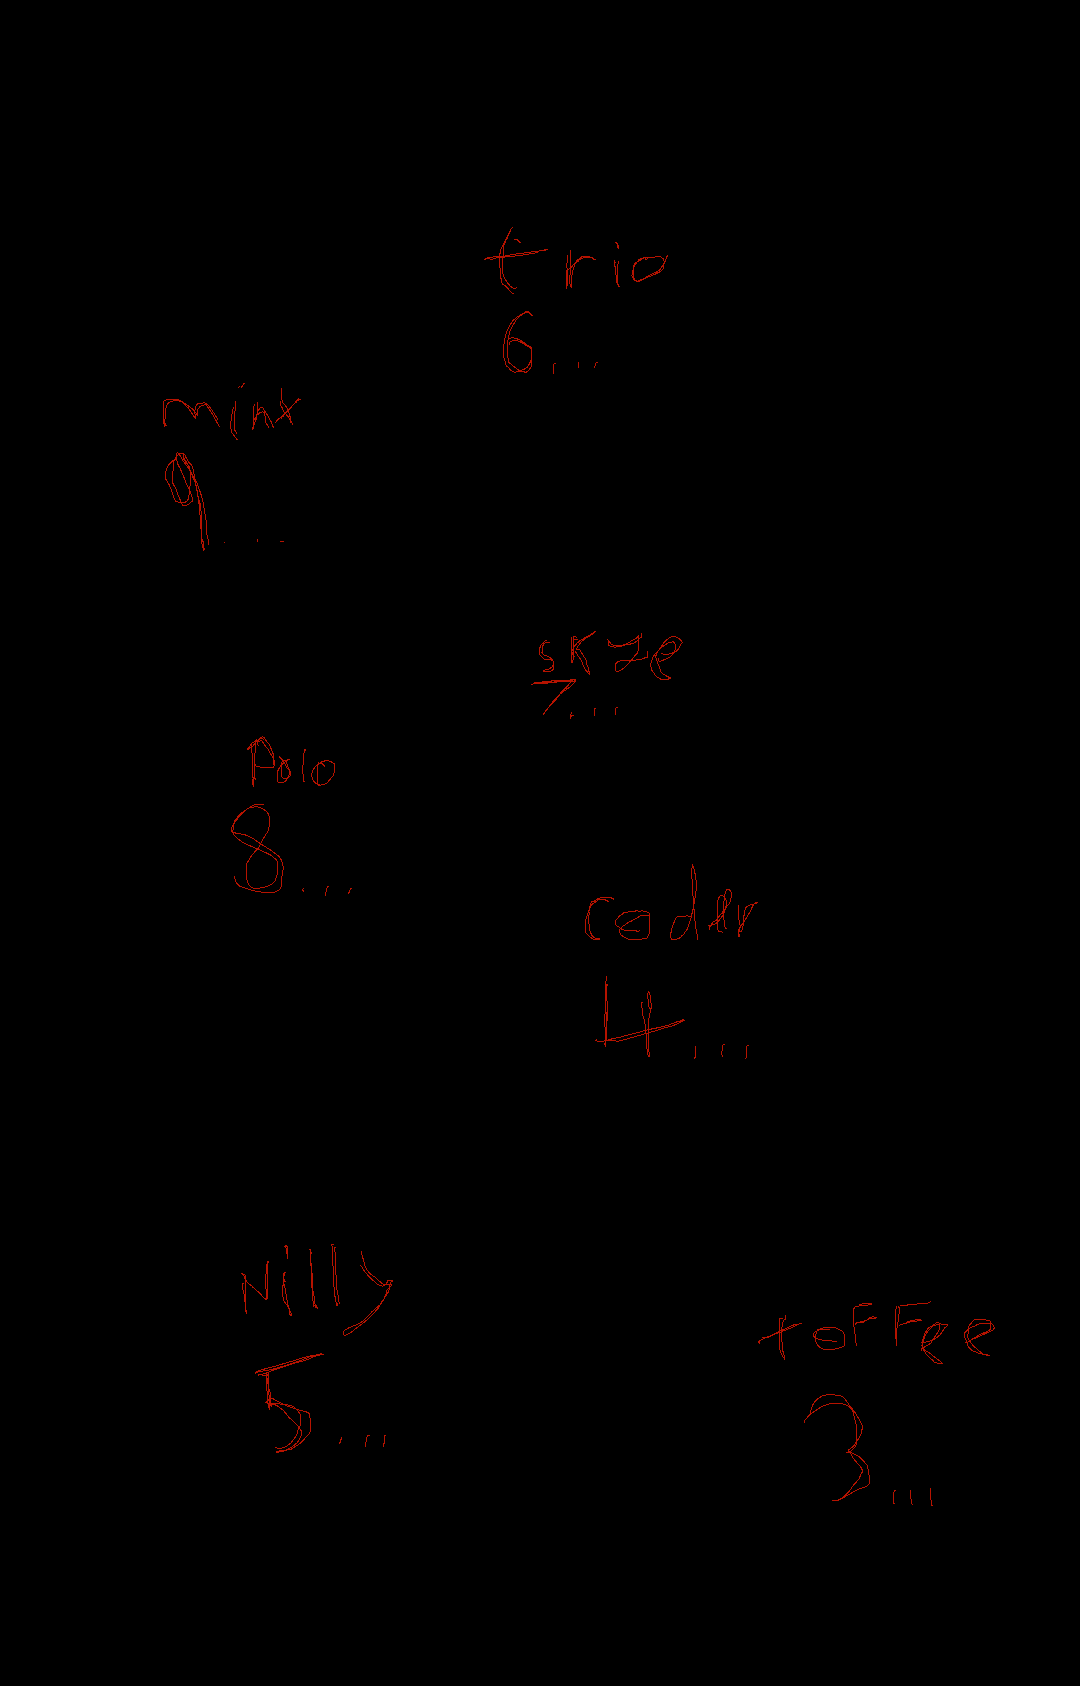 trio
6...
minx
9...
skze
7...
Polo
8...
coder
4...
Nilly
5...
toffee
3...